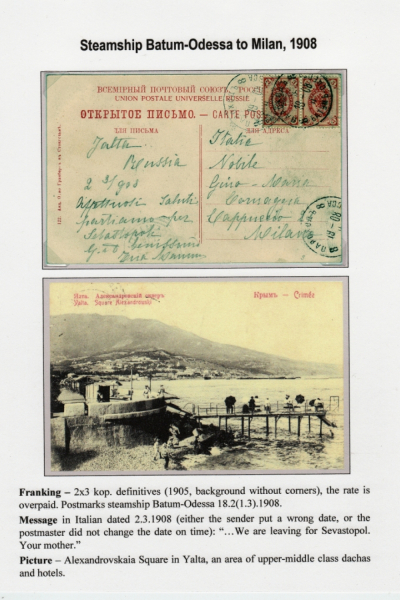 Steamship Batum-Odessa to Milan, 1908
ВСЕМІРНЫЙ ПОЧТОВЫЙ СОЮЗЪ.
UNION POSTALE UNIVERSELLE RUSSIE
ОТКРЫТОЕ ПИСЬМО. — CARTE POS
ДЛЯ ПИСЬМА
ДЛЯ АДРЕСА
Jalta
Russia
2 3/908
Affettuosi Saluti
partiamo per
Sebastopoli
Italia
Nobile
Gino
Milano
Ялта. Александровскій скверъ
Yalta. Square Alexandrowsky
Крымъ — Crimée
Franking – 2x3 kop. definitives (1905, background without corners), the rate is
overpaid. Postmarks steamship Batum-Odessa 18.2(1.3).1908.
Message in Italian dated 2.3.1908 (either the sender put a wrong date, or the
postmaster did not change the date on time): “…We are leaving for Sevastopol.
Your mother.”
Picture – Alexandrovskaia Square in Yalta, an area of upper-middle class dachas
and hotels.